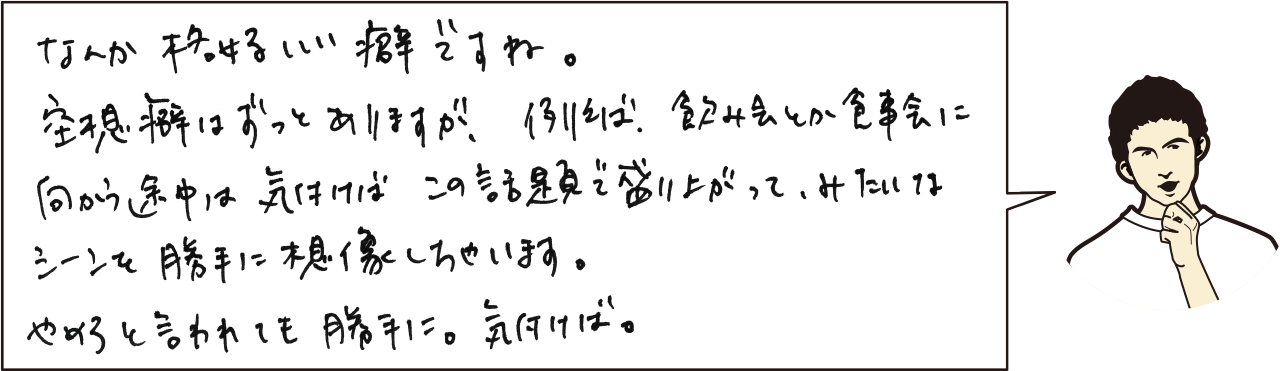 なんか格好いい癖ですね。
空想癖はずっとありますが、例えば、飲み会とか食事会に
向かう途中は気付けばこの話題で盛り上がって、みたいな
シーンを勝手に想像しちゃいます。
やめろと言われても勝手に。気付けば。